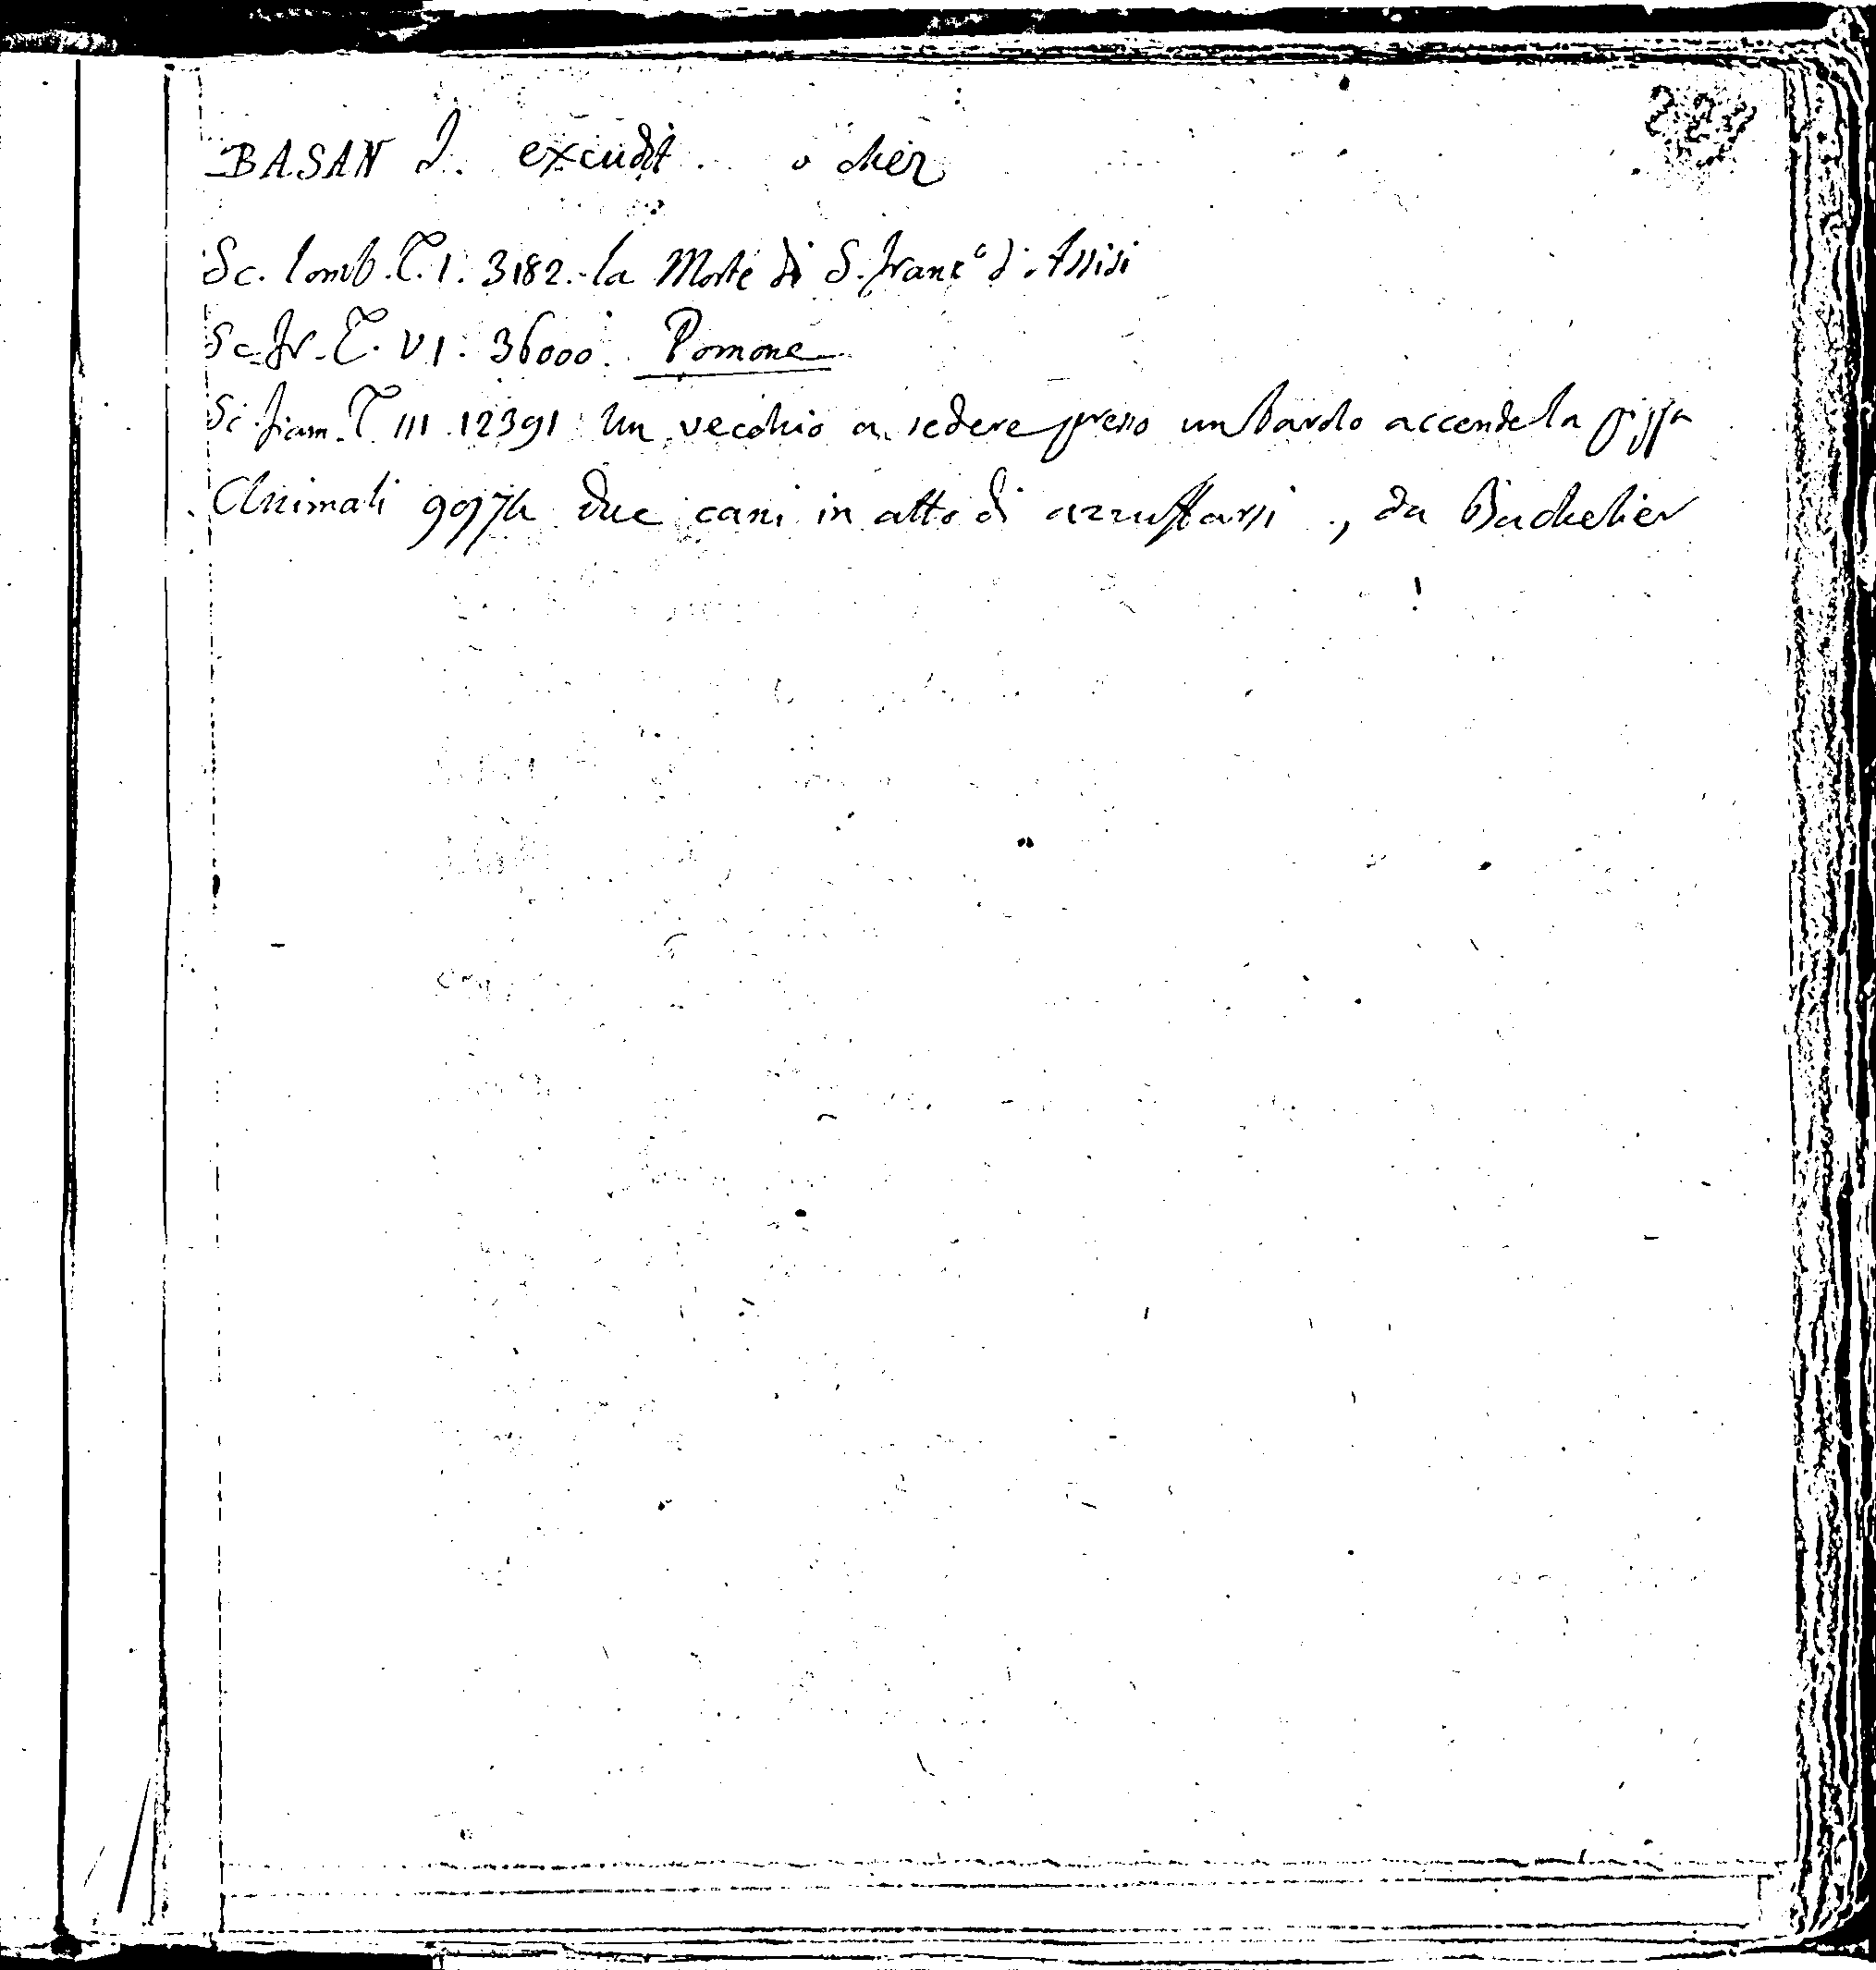 BASAN J. excudit. o chez
Sc. lomb. T. I. 3182. la Morte di S. Franc.º d'Assisi
Sc. Fr. T. VI. 36000. Pomone
Sc. fiam. T. III. 12391 Un vecchio a sedere presso un tavolo accende la pippa
Animali due cani in atto di azzuffarsi, da Bachelier